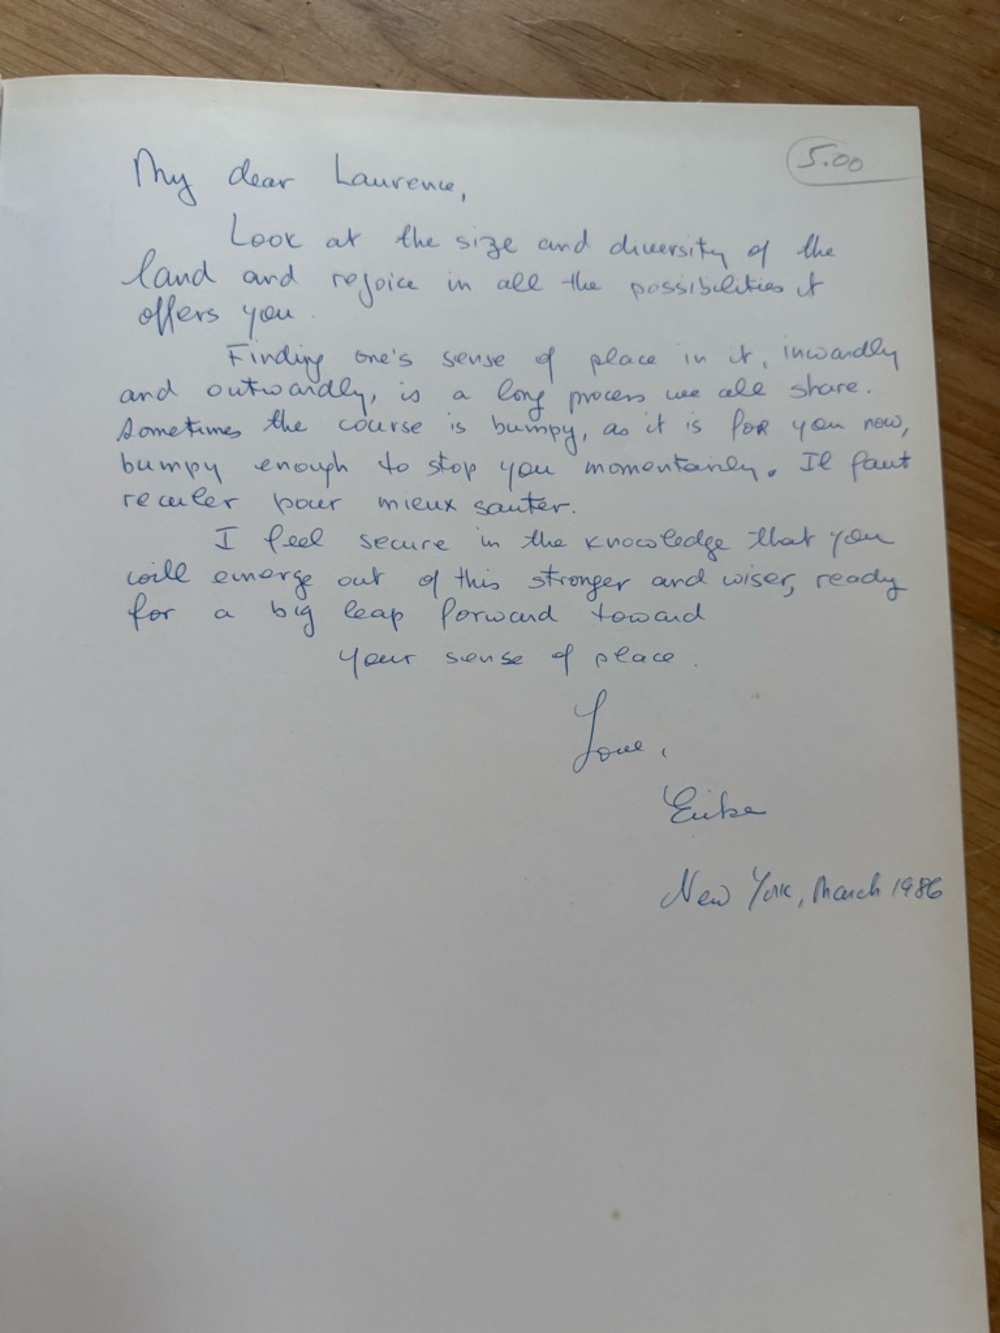 5.00
My dear Laurence,
Look at the size and diversity of the
land and rejoice in all the possibilities it
offers you.
Finding one's sense of place in it, inwardly
and outwardly, is a long process we all share.
Sometimes the course is bumpy, as it is for you now,
bumpy enough to stop you momentarily. Il faut
reculer pour mieux sauter.
I feel secure in the knowledge that you
will emerge out of this stronger and wiser, ready
for a big leap forward toward
your sense of place.
Love,
New York, March 1986